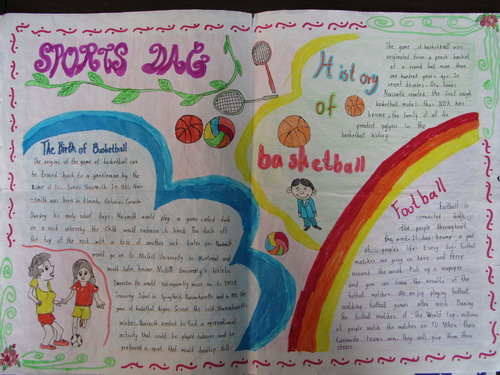 SPORTS DAG
History
of
basketball
The game of basketball was
originated from a peach basket
at a round ball more than
one hundred years ago. In
recent decades, Dr. James
Naismith created the first rough
basketball model, then NBA has
become the family of all the
greatest players in the
basketball history.
The Birth of Basketball
The origins of the game of basketball can
be traced back to a gentleman by the
name of Dr. James Naismith. In 1861, Nai-
smith was born in Almonte, Ontario, Canada
During his early school days, Naismith would play a game called duck
on a rock whereby the Child would endeavor to knock the duck off
the top of the rock with a toss of another rock. Later on, Naismith
would go to McGill University in Montreal and
would later become McGill University's Athletic
Director. He would subsequently move on to YMCA
Training School in Springfield Massachusetts and in 1891, the
game of basketball began. Giving the cold Massachusetts
winters, Naismith needed to find a recreational
activity that could be played indoors and he
preferred a sport that would develop skill
Football
football is
connected with
the people throughout
the world. It has become a part
of people's lives. Every day, football
matches are going on here and there
around the world. Pick up a newspaper
and you can know the results of the
football matches. We enjoy playing football,
watching football games after work. During
the football matches of The World Cup, millions
of people watch the matches on TV. When their
favourite teams win, they will give them three
cheers.